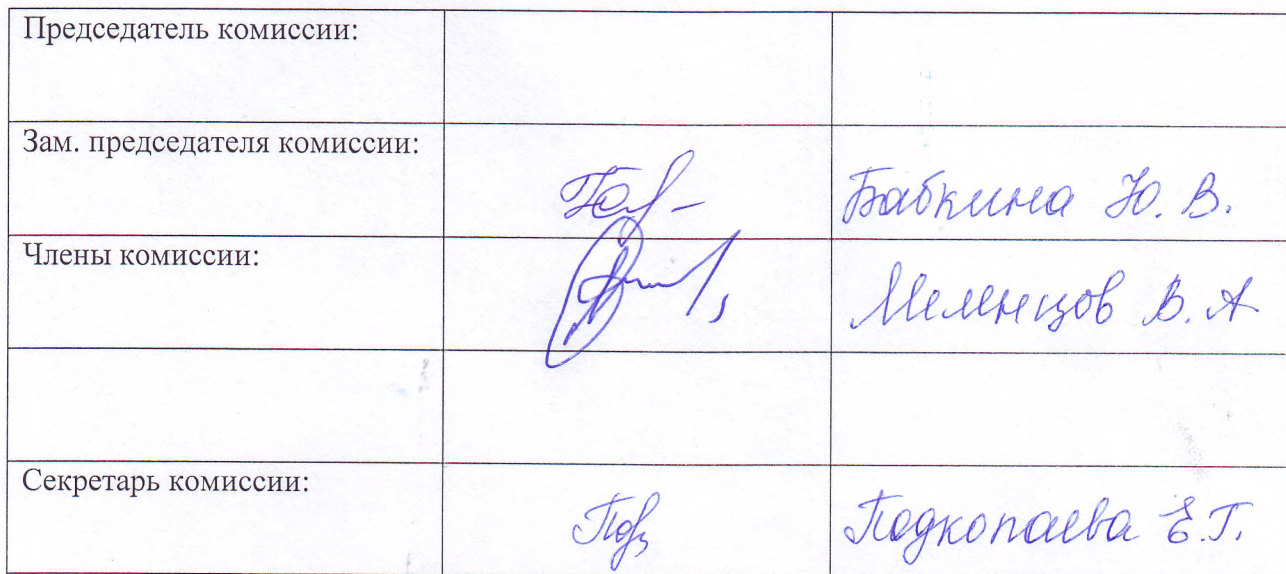 Председатель комиссии:
Зам. председателя комиссии:
Бабкина Ю. В.
Члены комиссии:
В. А
Секретарь комиссии:
Подкопаева Е.Г.